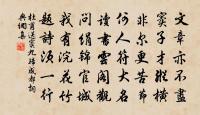 文章亦不盡
竇子才縱橫
非爾更苦節
何人符大名
讀書雲閣觀
問絹錦官城
我有浣花竹
題詩須一行
杜甫送竇九歸成都詞
典網集